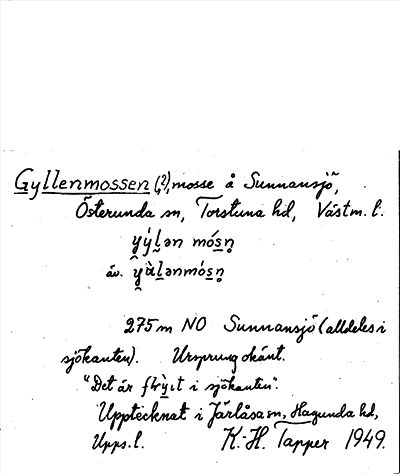 Gyllenmossen (?), mosse å Sunnansjö,
Österunda sn, Torstuna hd, Västm. l.
275 m NO Sunnansjö (alldeles i
sjökanten). Ursprung okänt.
"Det är flỳıt i sjökanten".
Upptecknat i Järlåsa sn, Hagunda hd,
Upps. l. K.-H. Tapper 1949.